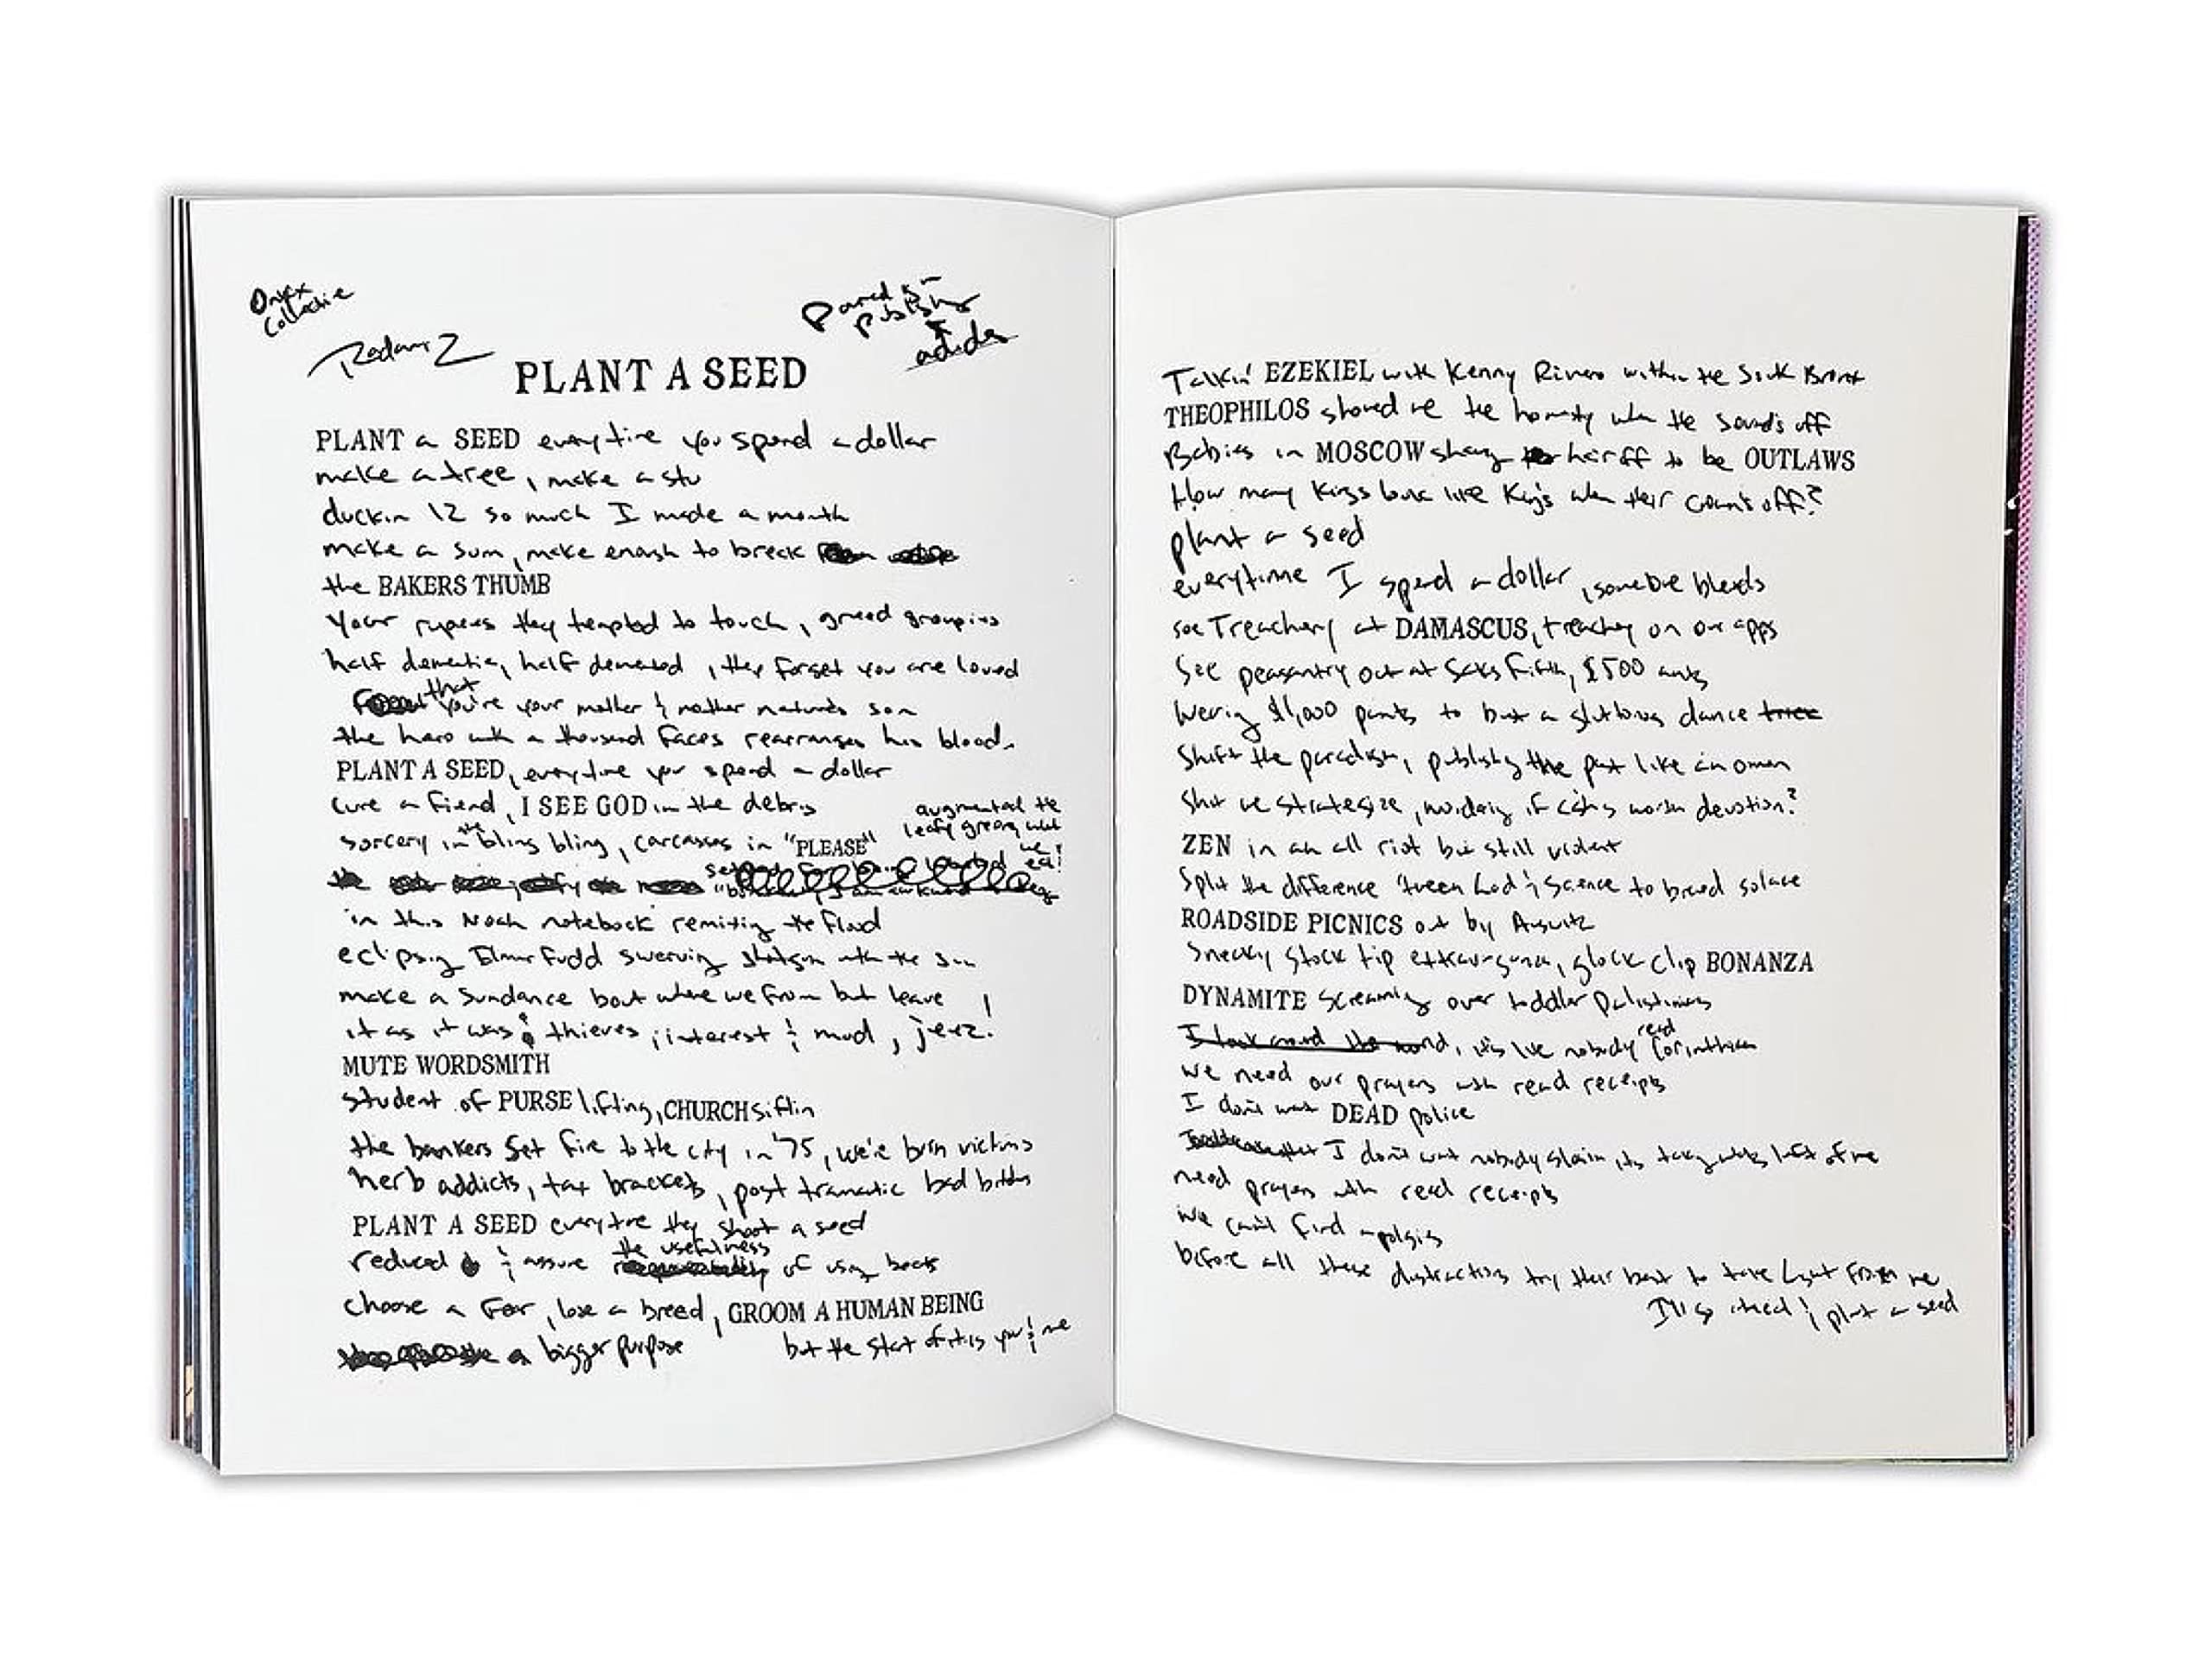 Onyx
Collective
Paradigm
publishing
adidas
PLANT A SEED
PLANT a SEED everytime you spend a dollar
make a tree, make a stu
duckin 12 so much I made a month
make a sum, make enough to break
the BAKERS THUMB
Your rupees they tempted to touch, greed groupies
half dementia, half demented, they forget you are loved
that
you're your mother & mother natures son
the hero with a thousand faces rearranges his blood.
PLANT A SEED, everytime you spend a dollar
cure a fiend, I SEE GOD in the debris
augmented the
leafy greens
we
sorcery in the bling bling, carcasses in "PLEASE"
in this Noah notebook remixing the flood
eclipsing Elmer Fudd swerving shotgun with the sun
make a sundance bout where we from but leave
it as it was; thieves, interest & mud, jeez!
MUTE WORDSMITH
student of PURSE lifting, CHURCH siftin
the bankers set fire to the city in '75, we're burn victims
herb addicts, tax brackets, post tramatic bad
PLANT A SEED everytime they shoot a seed
the usefulness
reduced & assure of using books
choose a, lose a breed, GROOM A HUMAN BEING
a bigger purpose but the start of it is you & me
Talkin' EZEKIEL with Kenny Rivero within the South Bronx
THEOPHILOS showed me the honesty when the sound's off
Babies in MOSCOW shaving hair off to be OUTLAWS
How many Kings look like Kings when their crown's off?
plant a seed
everytime I spend a dollar, someone bleeds
see Treachery at DAMASCUS, treachery on our apps
See peasantry out at Saks Fifth, $500
Wearing $1,000 pants to bust a gluttonous dance
Shift the paradigm, publishing the past like an omen
Shit we strategize, if worth devotion?
ZEN in an all riot but still violent
Split the difference 'tween God & Science to breed solace
ROADSIDE PICNICS out by
Sneaky stock tip extravaganza, glock clip BONANZA
DYNAMITE screaming over toddler Palestinians
I look around the world, it's like nobody read Corinthians
we need our prayers with read receipts
I don't want DEAD police
I don't want nobody slain, its taking what's left of me
need prayers with read receipts
we can't find apologies
before all these distractions try their best to take Light from me
I'll go ahead & plant a seed